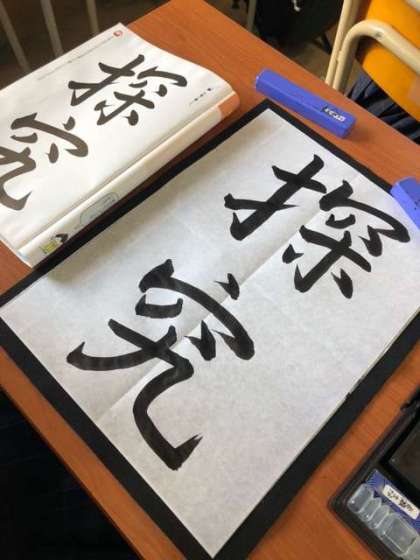 探
究
探
究